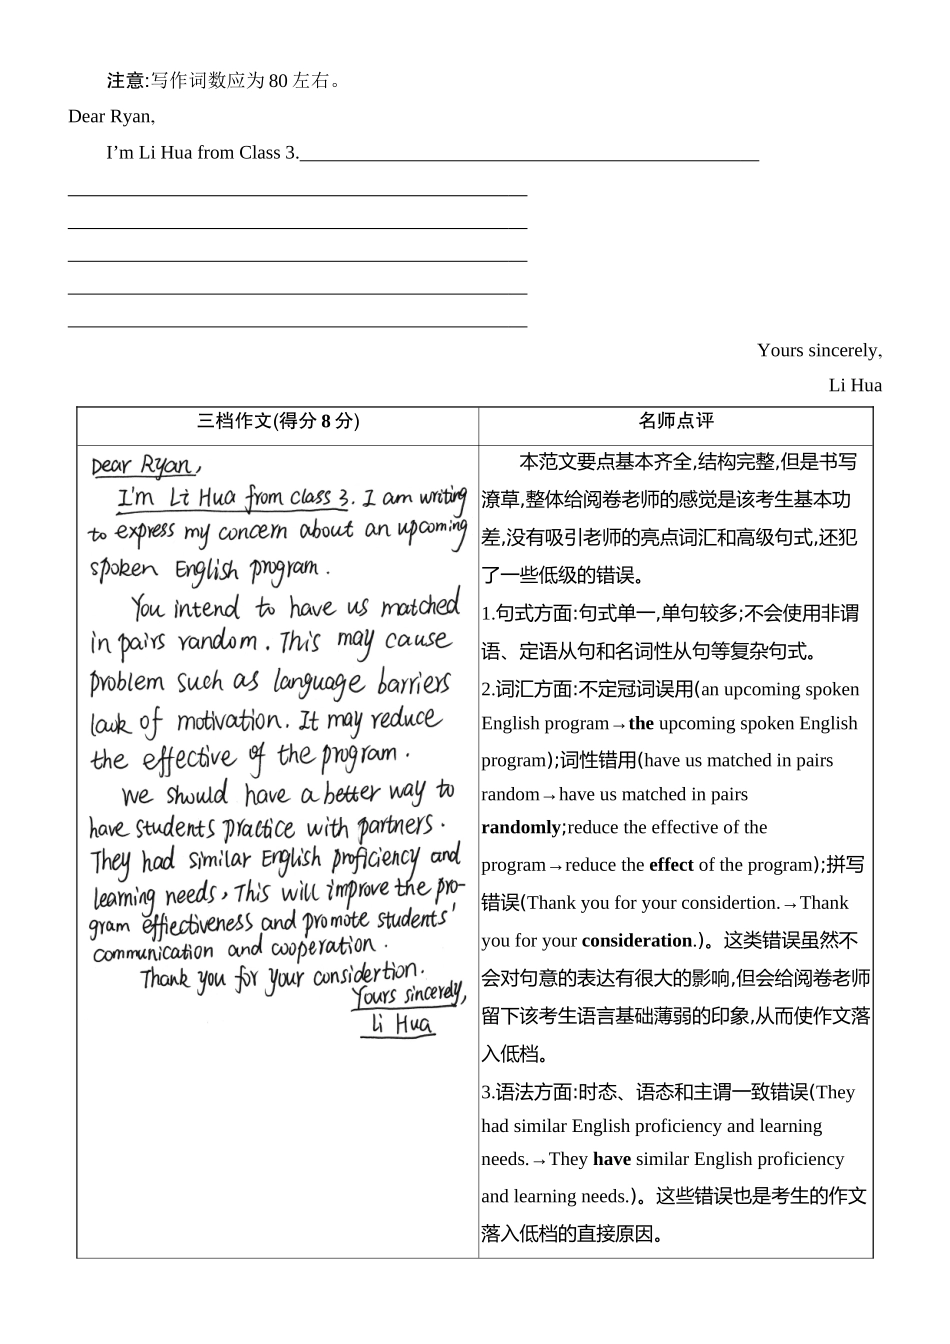 注意:写作词数应为 80 左右。
Dear Ryan,
I’m Li Hua from Class 3.
Yours sincerely,
Li Hua
三档作文(得分 8 分)
名师点评
Dear Ryan,
I'm Li Hua from class 3. I am writing
to express my concern about an upcoming
spoken English program.
You intend to have us matched
in pairs random. This may cause
problem such as language barriers
lack of motivation. It may reduce
the effective of the program.
We should have a better way to
have students practice with partners.
They had similar English proficiency and
learning needs, This will improve the pro-
gram effectiveness and promote students'
communication and cooperation.
Thank you for your considertion.
Yours sincerely,
Li Hua
本范文要点基本齐全,结构完整,但是书写
潦草,整体给阅卷老师的感觉是该考生基本功
差,没有吸引老师的亮点词汇和高级句式,还犯
了一些低级的错误。
1.句式方面:句式单一,单句较多;不会使用非谓
语、定语从句和名词性从句等复杂句式。
2.词汇方面:不定冠词误用(an upcoming spoken
English program→the upcoming spoken English
program);词性错用(have us matched in pairs
random→have us matched in pairs
randomly;reduce the effective of the
program→reduce the effect of the program);拼写
错误(Thank you for your considertion.→Thank
you for your consideration.)。这类错误虽然不
会对句意的表达有很大的影响,但会给阅卷老师
留下该考生语言基础薄弱的印象,从而使作文落
入低档。
3.语法方面:时态、语态和主谓一致错误(They
had similar English proficiency and learning
needs.→They have similar English proficiency
and learning needs.)。这些错误也是考生的作文
落入低档的直接原因。